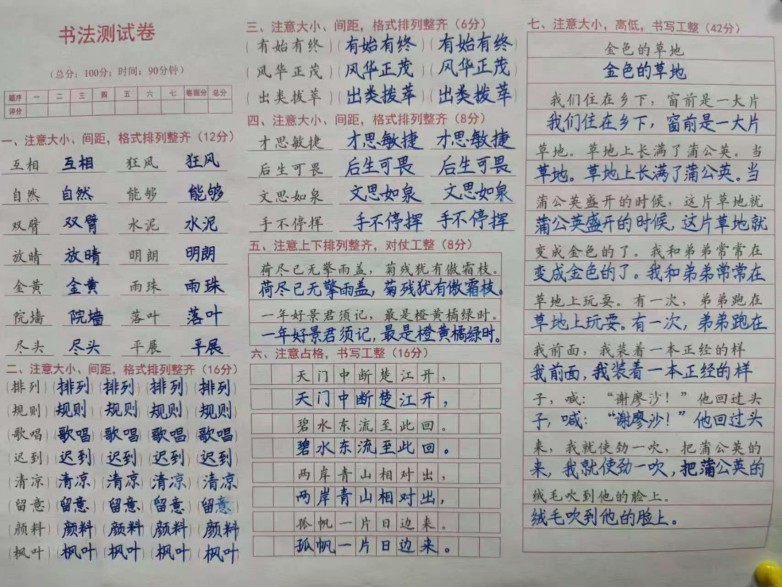 书法测试卷
（总分：100分；时间：90分钟）
题序 一 二 三 四 五 六 七 卷面分 总分
得分
一、注意大小、间距，格式排列整齐（12分）
互相 互相 狂风 狂风
自然 自然 能够 能够
双臂 双臂 水泥 水泥
放晴 放晴 明朗 明朗
金黄 金黄 雨珠 雨珠
院墙 院墙 落叶 落叶
尽头 尽头 平展 平展
二、注意大小、间距，格式排列整齐（16分）
（排列）（排列）（排列）（排列）（排列）
（规则）（规则）（规则）（规则）（规则）
（歌唱）（歌唱）（歌唱）（歌唱）（歌唱）
（迟到）（迟到）（迟到）（迟到）（迟到）
（清凉）（清凉）（清凉）（清凉）（清凉）
（留意）（留意）（留意）（留意）（留意）
（颜料）（颜料）（颜料）（颜料）（颜料）
（枫叶）（枫叶）（枫叶）（枫叶）（枫叶）
三、注意大小、间距，格式排列整齐（6分）
（有始有终）（有始有终）（有始有终）
（风华正茂）（风华正茂）（风华正茂）
（出类拔萃）（出类拨萃）（出类拨萃）
四、注意大小、间距，格式排列整齐（8分）
才思敏捷 才思敏捷 才思敏捷
后生可畏 后生可畏 后生可畏
文思如泉 文思如泉 文思如泉
手不停挥 手不停挥 手不停挥
五、注意上下排列整齐，对仗工整（8分）
荷尽已无擎雨盖，菊残犹有傲霜枝。
荷尽已无擎雨盖，菊残犹有傲霜枝。
一年好景君须记，最是橙黄橘绿时。
一年好景君须记，最是橙黄橘绿时。
六、注意占格，书写工整（16分）
天门中断楚江开，
天门中断楚江开，
碧水东流至此回。
碧水东流至此回。
两岸青山相对出，
两岸青山相对出，
孤帆一片日边来。
孤帆一片日边来。
七、注意大小，高低，书写工整（42分）
金色的草地
金色的草地
我们住在乡下，窗前是一大片
我们住在乡下，窗前是一大片
草地。草地上长满了蒲公英。当
草地。草地上长满了蒲公英。当
蒲公英盛开的时候，这片草地就
蒲公英盛开的时候，这片草地就
变成金色的了。我和弟弟常常在
变成金色的了。我和弟弟常常在
草地上玩耍。有一次，弟弟跑在
草地上玩耍。有一次，弟弟跑在
我前面，我装着一本正经的样
我前面，我装着一本正经的样
子，喊：“谢廖沙！”他回过头
子，喊：“谢廖沙！”他回过头
来，我就使劲一吹，把蒲公英的
来，我就使劲一吹，把蒲公英的
绒毛吹到他的脸上.
绒毛吹到他的脸上。